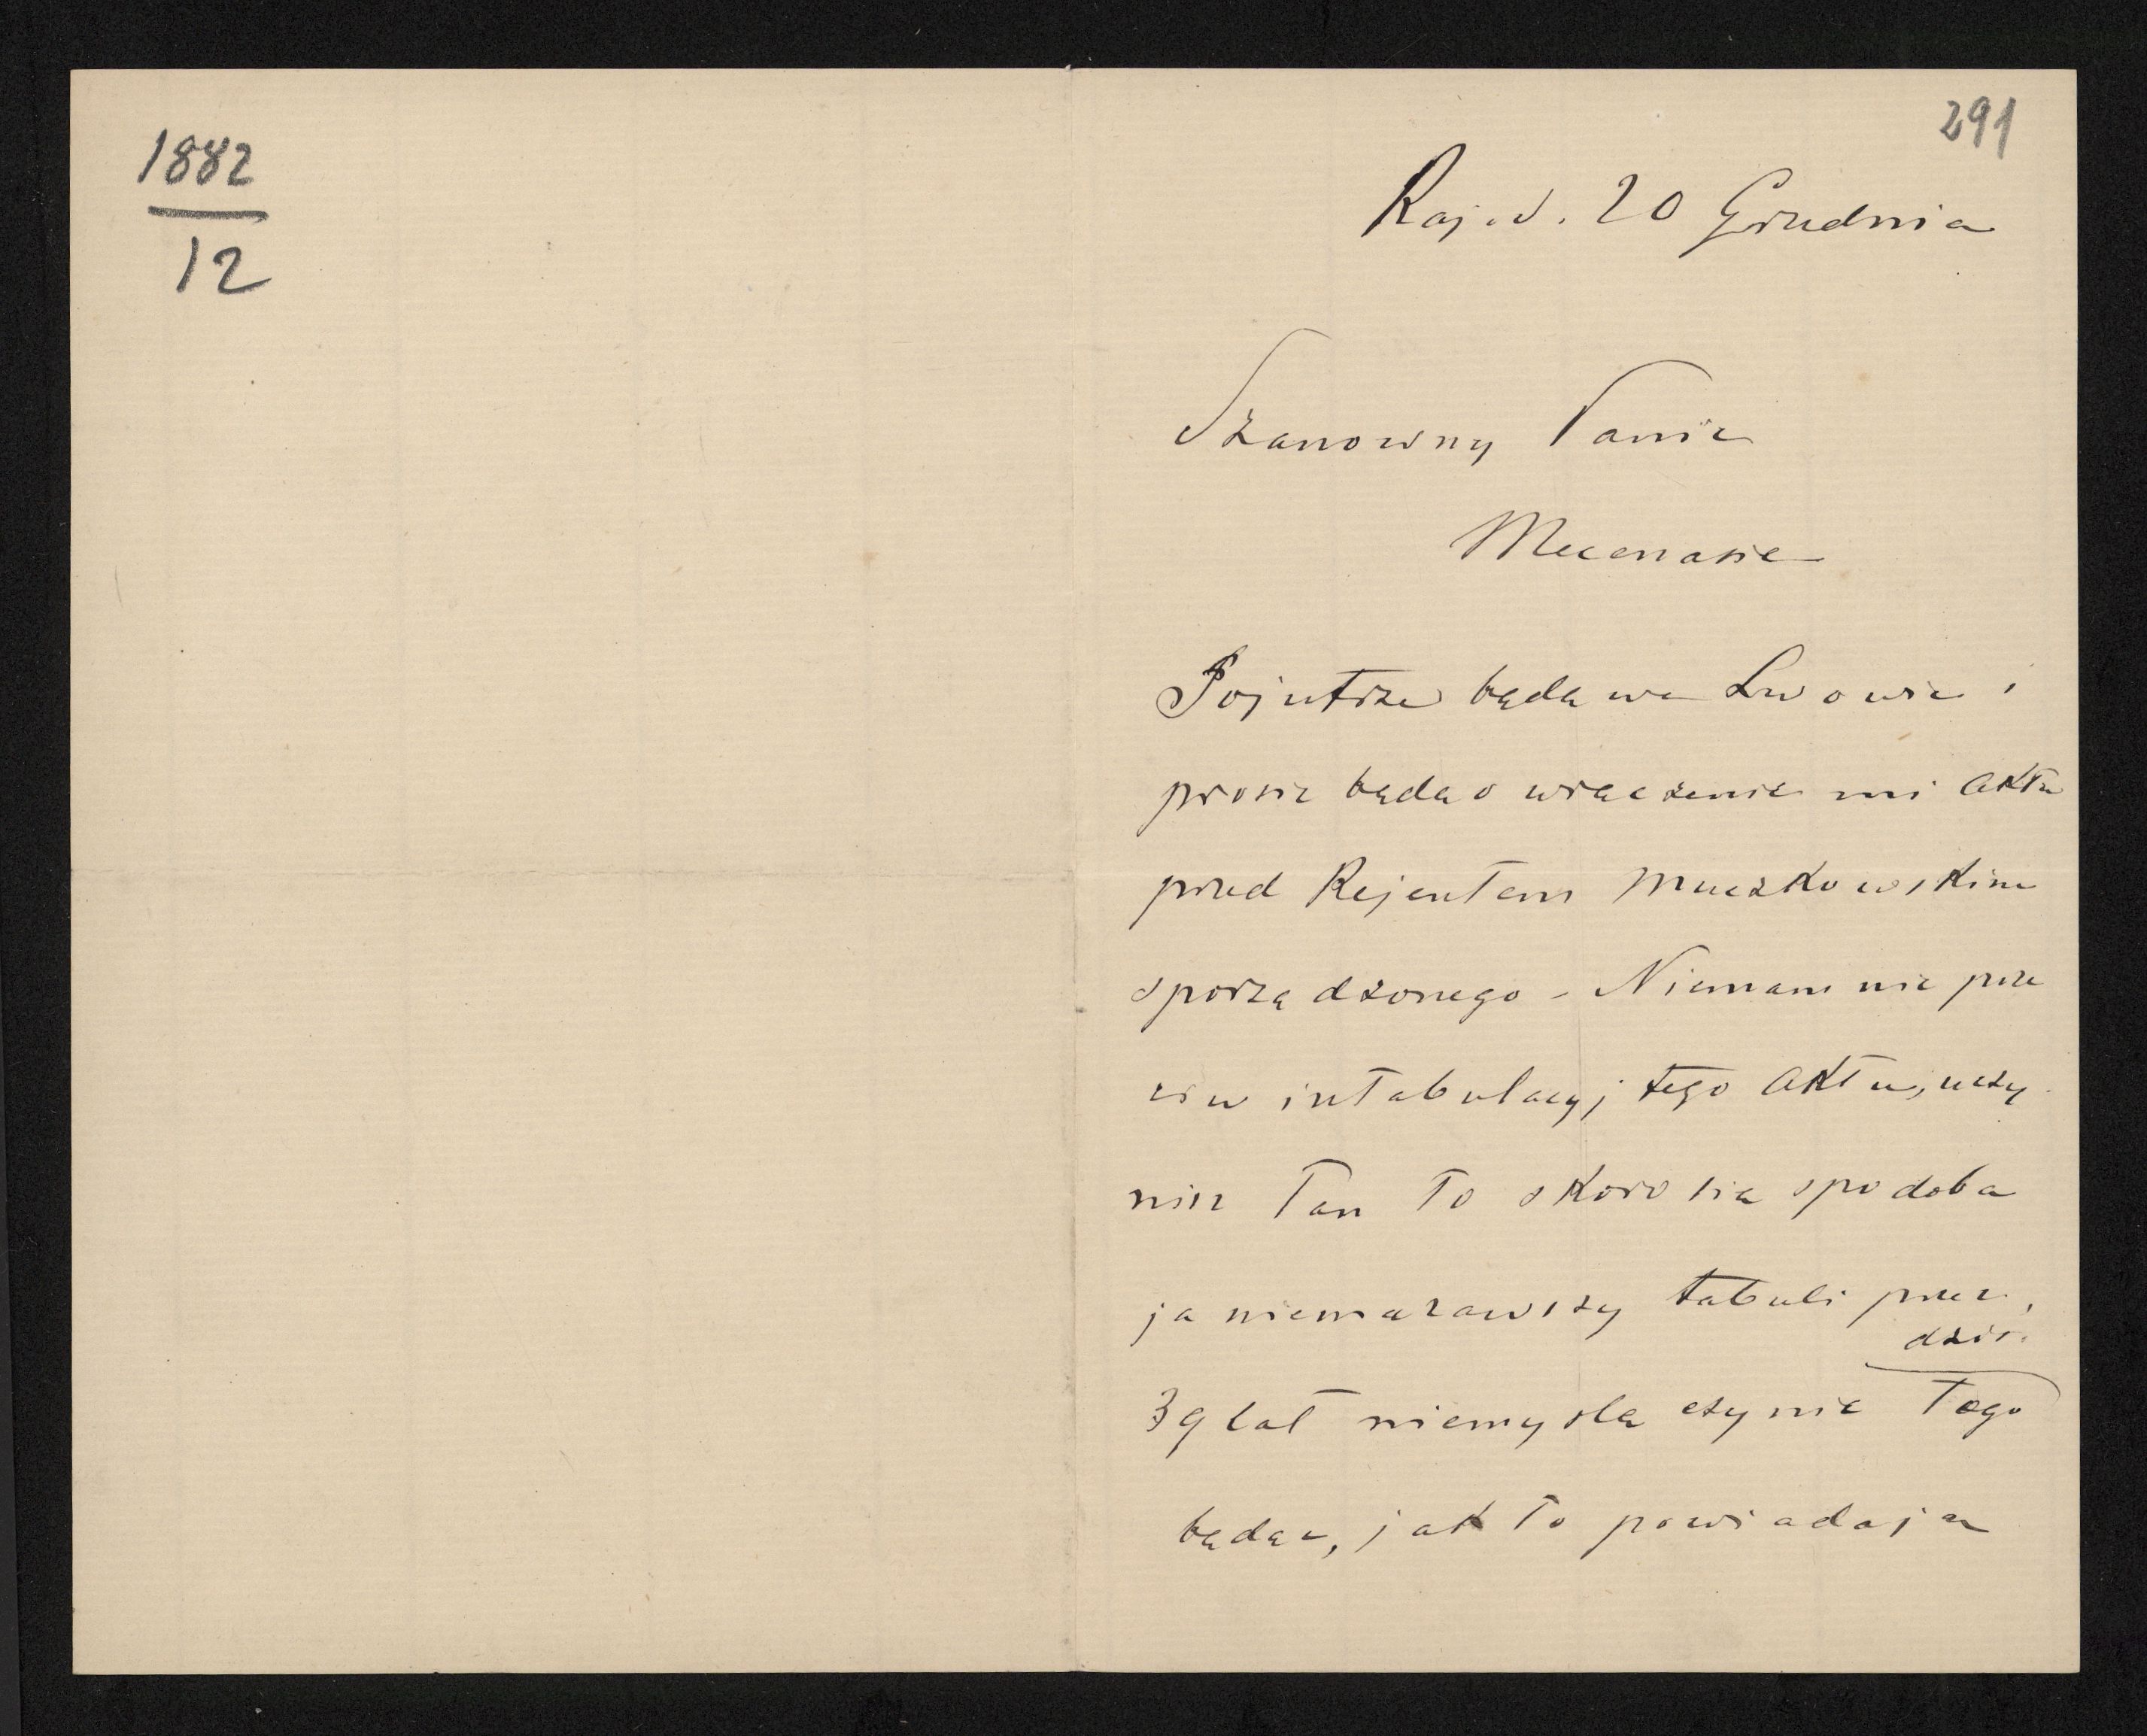 1882
12
291
Raj. d. 20 Grudnia
Szanowny Panie
Mecenasie
Pojutrze będę we Lwowie i
prosić będę o wręczenie mi aktu
przed Rejentem Muczkowskim
sporządzonego - Niemam nic prze
ciw intabulacyj tego aktu, uczy
nisz Pan to skoro się spodoba
ja niemazawszy tabuli przez
dziś.
39 lat niemyślę czynić tego
będąc, jak to powiadają